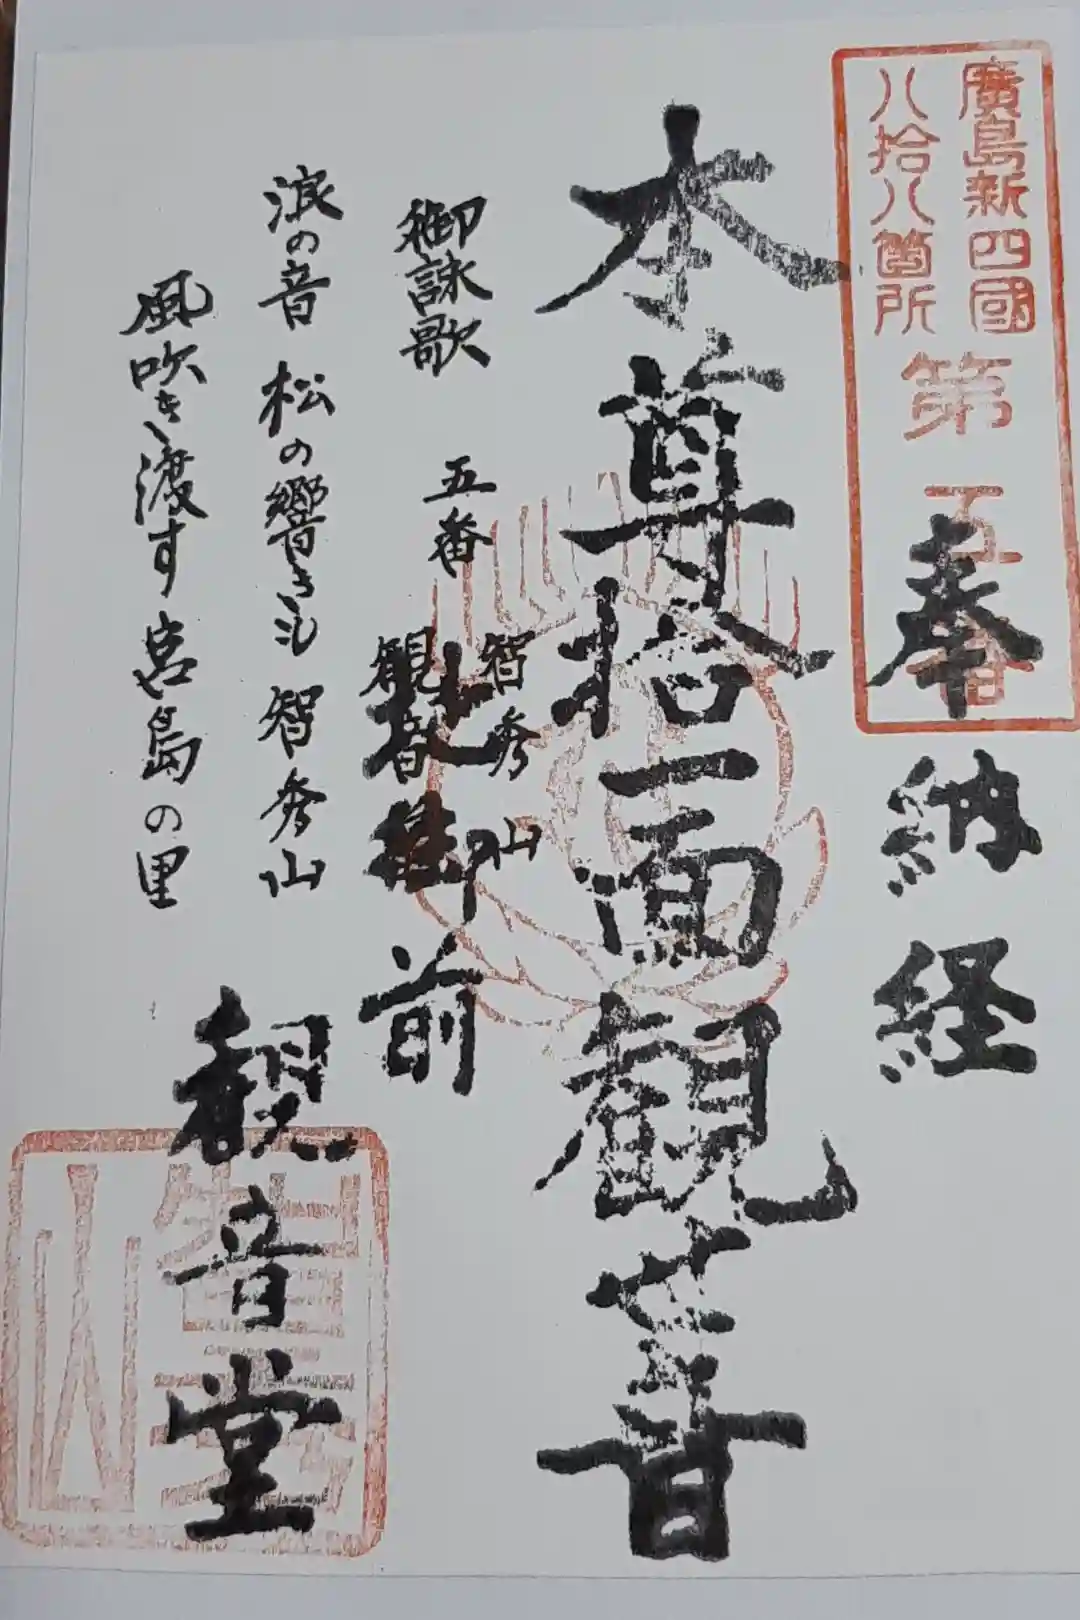 廣島新四國
八拾八箇所
第五番
奉納経
本尊拾一面観世音
御前
御詠歌 五番 智秀山
観音堂
浪の音 松の響きも 智秀山
風吹き渡す 宮島の里
観音堂